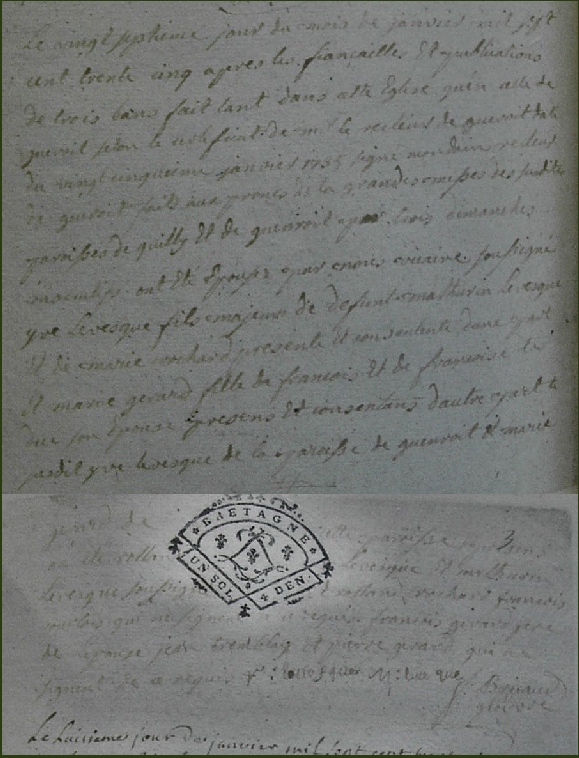 Le vingt septieme jour du mois de janvier mil sept
cent trente cinq apres les fiançailles Et publications
de trois bans fait tant dans cette Eglise qu'en celle de
guenroit selon le certificat de mr le recteur de guenroit datte
du vingt cinquieme janvier 1735 signé recteur
de guenroit faits aux prones de la grandes messes des susdittes
parroisses de quilly Et de guenroit par trois dimanches
consecutifs ont Eté Epousez par nous vicaire soussigné
yve Levesque fils majeur de defunt mathurin Levesque
Et de marie rochard presente Et consentente dune part
Et marie gerard fille de francois Et de francoise le
duc son Epouse presens Et consentans d'autre part le
susdit yve levesque de la paroisse de guenroit Et marie
gerard de cette parroisse
Levesque Et mathurin
Levesque soussig rolland rochard francois
qui ne signent a requis francois gerard pere
de lepouse jean tremblay Et pierre gerard qui ne
signent de ce requis
BRETAGNE
UN SOL 4 DEN.
Le huitieme jour de janvier mil sept cent